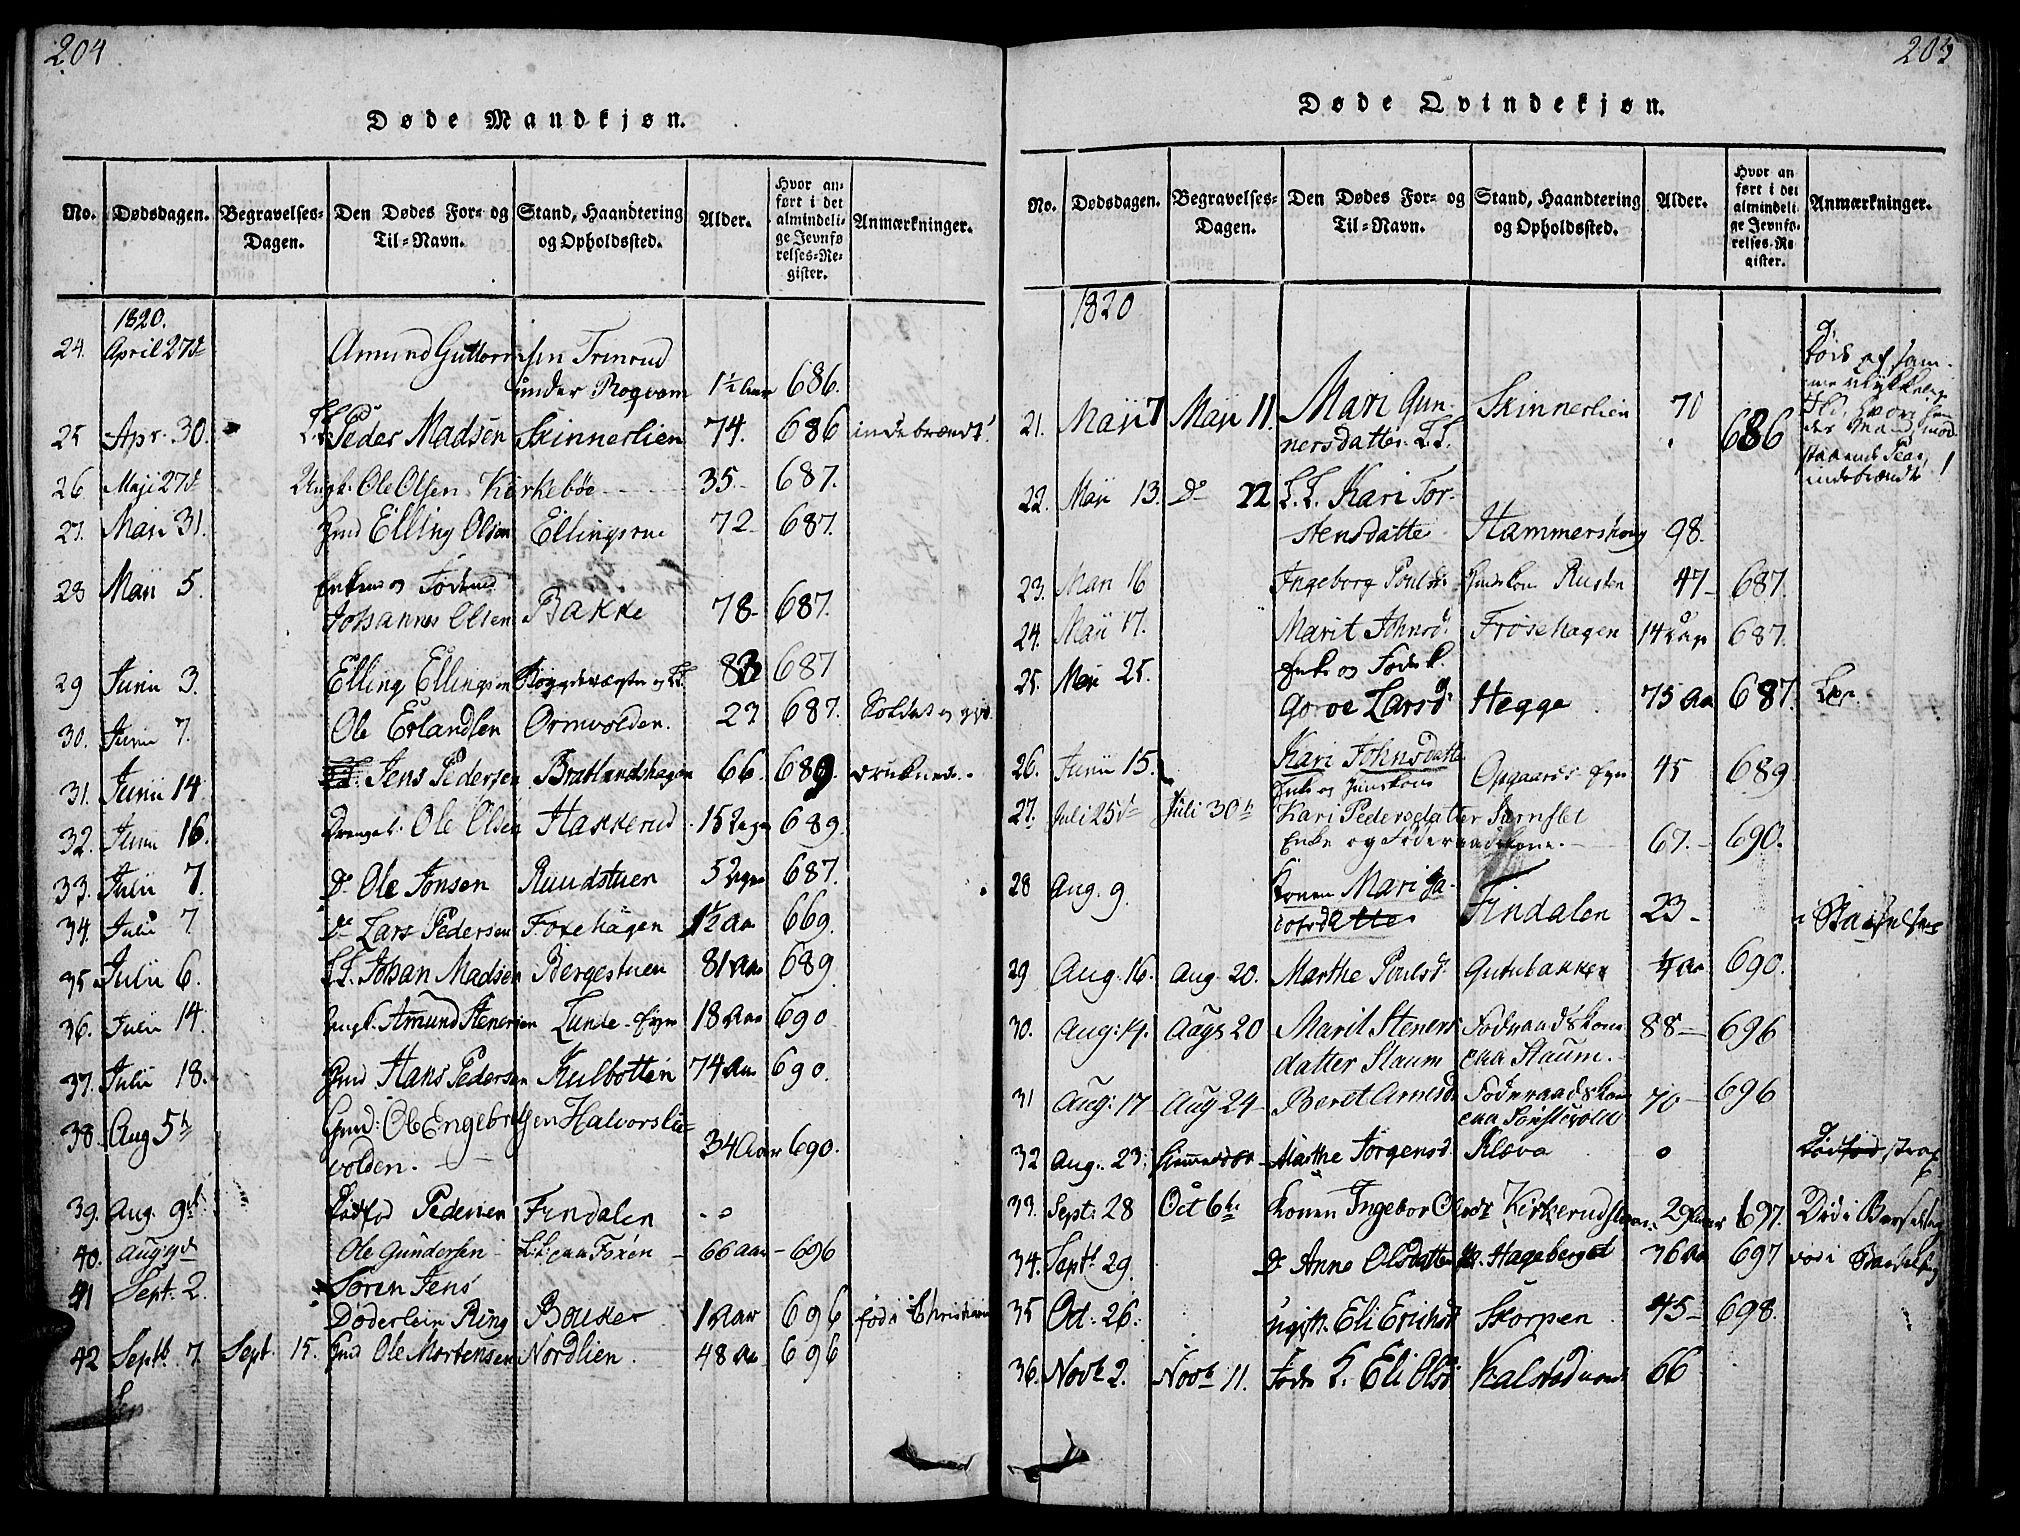 204
Døde Mandkjøn.
No. Dødsdagen. Begravelses-Dagen. Den Dødes For- og Til-Navn. Stand, Haandtering og Opholdssted. Alder. Hvor anført i det almindelige Jevnførelses-Register. Anmærkninger.
1820.
24. April 27de Amund Guttormsen Trinrud
under Rogvam 1½ Aar 686.
25 Apr. 30. L.L. Peder Madsen Skinnerlien 74. 686 indebrændt!
26 Maji 27de Ungk. Ole Olsen Kirkebøe 35. 687.
27. Maii 31. Huusmd Elling Olsen Ellingsrue 72 687.
28 Maii 5. Enkem og Føderaad
Johannes Olsen Bakke 78 687.
29 Junii 3. Elling Ellingsen 83 687
30. Junii 7. Ole Erlandsen Ormvolden. 23 687. Soldat og
31. Junii 14. Jens Pedersen Bratlandshagen 66. 689. druknede.
32. Junii 16. Drengeb. Ole Olsen Hakkerud 15 Uger 689.
33. Julii 7. Do Ole Jonsen Ruudstuen 5 Uger 687.
34. Julii 7 Do Lars Pedersen Foxehagen 1½ Aa 669.
35 Julii 6. L.L. Johan Madsen Bergestuen 81 Aar 689.
36. Julii 14. Ungk. Amund Stenersen Lunde-Eyen 18 Aar 690
37. Julii 18. Huusmd Hans Pedersen Kulbotten 74 Aar 690.
38. Aug 5te Huusmd: Ole Engebretsen Halvorslie-
volden. 34 Aar 690.
39. Aug. 9de Dødfød Pedersen Findalen - o
40. Aug 9de Ole Gundersen L:L: paa Foxen 66 Aar 696
41 Sept. 2. Søren Jens
Døderlein Ring Bouker 1 Aar 696 fød i Christiania
42 Septb 7. Sept 15. Huusmd Ole Mortensen Nordlien. 48 Aa 696
205
Døde Qvindekjøn.
No. Dødsdagen. Begravelses-Dagen. Den Dødes For- og Til-Navn. Stand, Haandtering og Opholdssted. Alder. Hvor anført i det almindelige Jevnførelses-Register. Anmærkninger.
1820
21. Maii 7 Maii 11. Mari Gun- Skinnerlien 70 686 Døde af sam-
nersdatter L.L. me ulykkelige
Ild, hvori hen
des Mand, mod
staaende Side,
indebrændte!
22. Maii 13. Do 22 L.L. Kari Tor-
stensdatter Hammershoug 98.
23. Maii 16 Ingeborg Poulsd. Huuskone Rusten 47 687.
24. Maii 17. Marit Johnsd. Frøsehagen 14 Uger 687.
25. Maii 25. Enke og Føder. K.
Goroe Larsd. Hegge 75 Aa 687.
26. Junii 15. Kari Johnsdatter Opgaards Eyn 45 689
Enke og Huuskone
27. Juli 25de Juli 30te Kari Pedersdatter
Enke og Føderaadskone. 67. 690.
28 Aug. 9. Konen Mari Ja-
cobsdatter Findalen 23 i Barselseng
29 Aug. 16. Aug. 20. Marthe Poulsd. Gutubakken ¼ Aa 690.
30. Aug: 14. Aug 20 Marit Steners Føderaadskone 88 696
datter Staum paa Staum.
31 Aug: 17 Aug 24 Beret Arnesd. Føderaadskone 70 696
paa
32 Aug. 23. Hiemmedøbt Marthe Jørgensd. Klæva o Døde strax
33. Sept: 28 Oct 6te Konen Ingebor Olsdr Kirkerudstuen 29 Aar 697. Død i Barselseng
34. Septb 29. Do Anne Olsdatter Hageberget 36 Aa 697 død i Barselseng
35 Oct. 26. ugift Eli Erichsd. Skorpen 45 698.
36. Novb 2. Novb 11. Føder. K. Eli Olsd. Kalstad 66